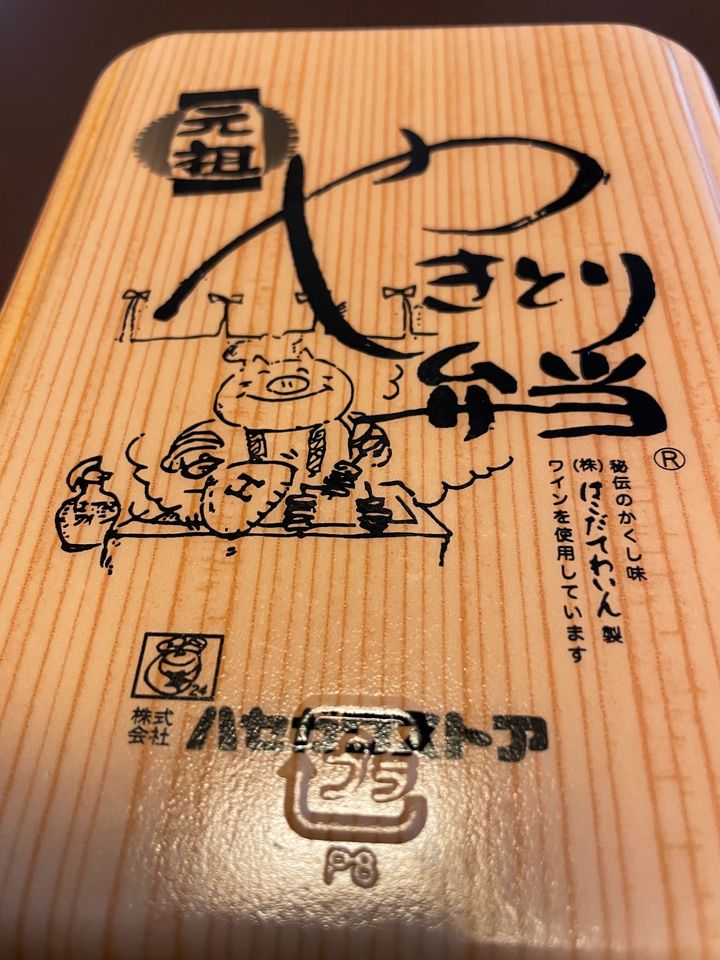 元祖
やきとり
弁当
®
秘伝のかくし味
(株)はこだてわいん製
ワインを使用しています
24
株式
会社
ハセガワストア
プラ
P8